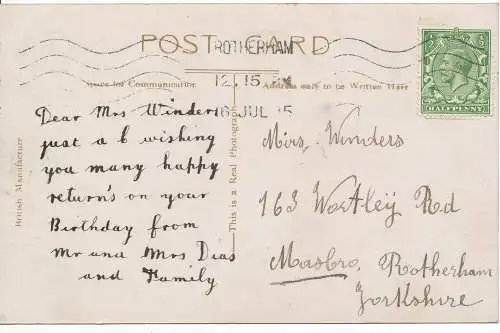 POST CARD
ROTHERHAM
12.15
16 JUL 15
HALFPENNY
Space for Communication
Address only to be Written Here
British Manufacture
This is a Real Photograph
Dear Mrs Winders
just a b wishing
you many happy
return's on your
Birthday from
Mr and Mrs Dias
and Family
Winders
163 Wortley Rd
Masbro, Rotherham
Yorkshire